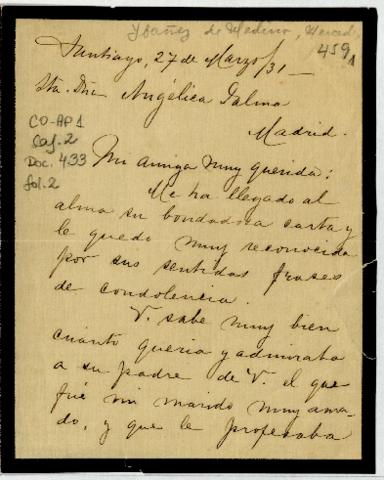 Ybáñez de Medina, Merced.
459 1
Santiago, 27 de Marzo/31-
Sta. Dña Angélica Palma
Madrid.
CO-AP1
Caj. 2
Doc. 433
fol. 2
Mi amiga muy querida:
Me ha llegado al
alma su bondadosa carta y
le quedo muy reconocida
por sus sentidas frases
de condolencia.
V. sabe muy bien
cuánto quería y admiraba
a su padre de V. el que
fué mi marido muy ama-
do, y que le profesaba